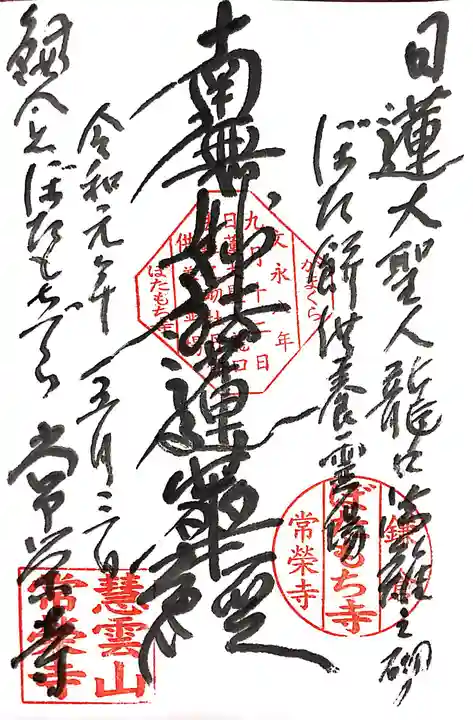 日蓮大聖人龍口法難之砌り
ぼた餅供養霊場
南無妙法蓮華経
令和元年五月三十日
鎌倉ぼたもちでら
常栄寺
かまくら
文永八年
九月十二日
ぼたもち寺
ぼたもち寺
常榮寺
慧雲山
常榮寺